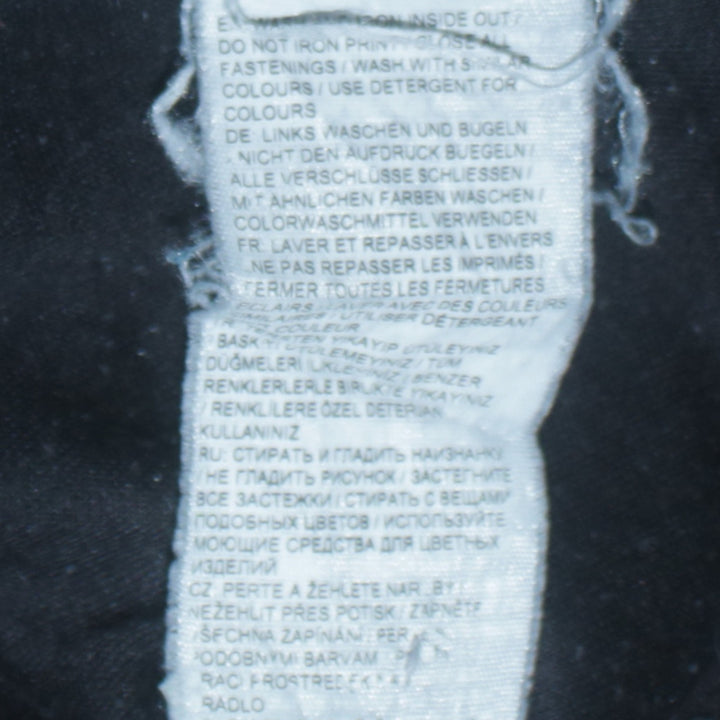 INSIDE OUT /
DO NOT IRON PRINT / CLOSE ALL
FASTENINGS / WASH WITH SIMILAR
COLOURS / USE DETERGENT FOR
COLOURS
DE: LINKS WASCHEN UND BÜGELN
/ NICHT DEN AUFDRUCK BUEGELN /
ALLE VERSCHLÜSSE SCHLIESSEN /
MIT ÄHNLICHEN FARBEN WASCHEN /
COLORWASCHMITTEL VERWENDEN
FR: LAVER ET REPASSER À L'ENVERS
/ NE PAS REPASSER LES IMPRIMÉS /
FERMER TOUTES LES FERMETURES
AVEC DES COULEURS
/ UTILISER DÉTERGENT
COULEUR
YIKAYIP ÜTÜLEYİNİZ
/ TÜM
DÜĞMELERİ / BENZER
RENKLERLERLE BİRLİKTE YIKAYINIZ
/ RENKLİLERE ÖZEL DETERJAN
KULLANINIZ
RU: СТИРАТЬ И ГЛАДИТЬ НАИЗНАНКУ
/ НЕ ГЛАДИТЬ РИСУНОК / ЗАСТЕГНИТЕ
ВСЕ ЗАСТЕЖКИ / СТИРАТЬ С ВЕЩАМИ
ПОДОБНЫХ ЦВЕТОВ / ИСПОЛЬЗУЙТЕ
МОЮЩИЕ СРЕДСТВА ДЛЯ ЦВЕТНЫХ
ИЗДЕЛИЙ
CZ: PERTE A ŽEHLETE
NEŽEHLIT PŘES POTISK / ZAPNĚTE
VŠECHNA ZAPÍNÁNÍ /
PODOBNÝMI BARVAMI
PRACÍ
PRÁDLO